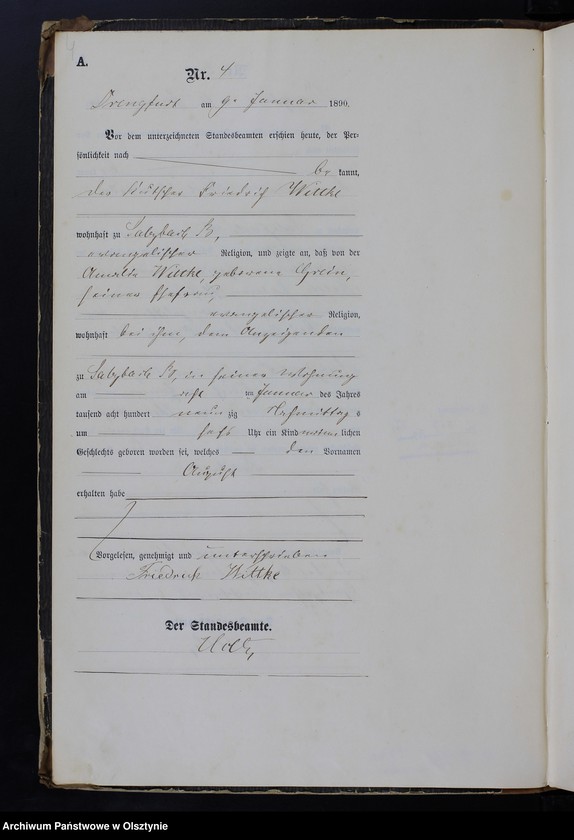 4
A.
Nr. 4.
Drengfurt am 9. Januar 1890.
Vor dem unterzeichneten Standesbeamten erschien heute, der Per-
sönlichkeit nach
be kannt,
der Kutscher Friedrich Wittke
wohnhaft zu Salzbach B,
evangelischer Religion, und zeigte an, daß von der
Amalie Wittke, geborene Grein,
seiner Ehefrau,
evangelischer Religion,
wohnhaft bei ihm, dem Anzeigenden
zu Salzbach B, in seiner Wohnung
am acht en Januar des Jahres
tausend acht hundert neun zig Nachmittag s
um sechs Uhr ein Kind männ lichen
Geschlechts geboren worden sei, welches den Vornamen
August
erhalten habe
Vorgelesen, genehmigt und unterschrieben
Friedrich Wittke
Der Standesbeamte.
Archiwum Państwowe w Olsztynie